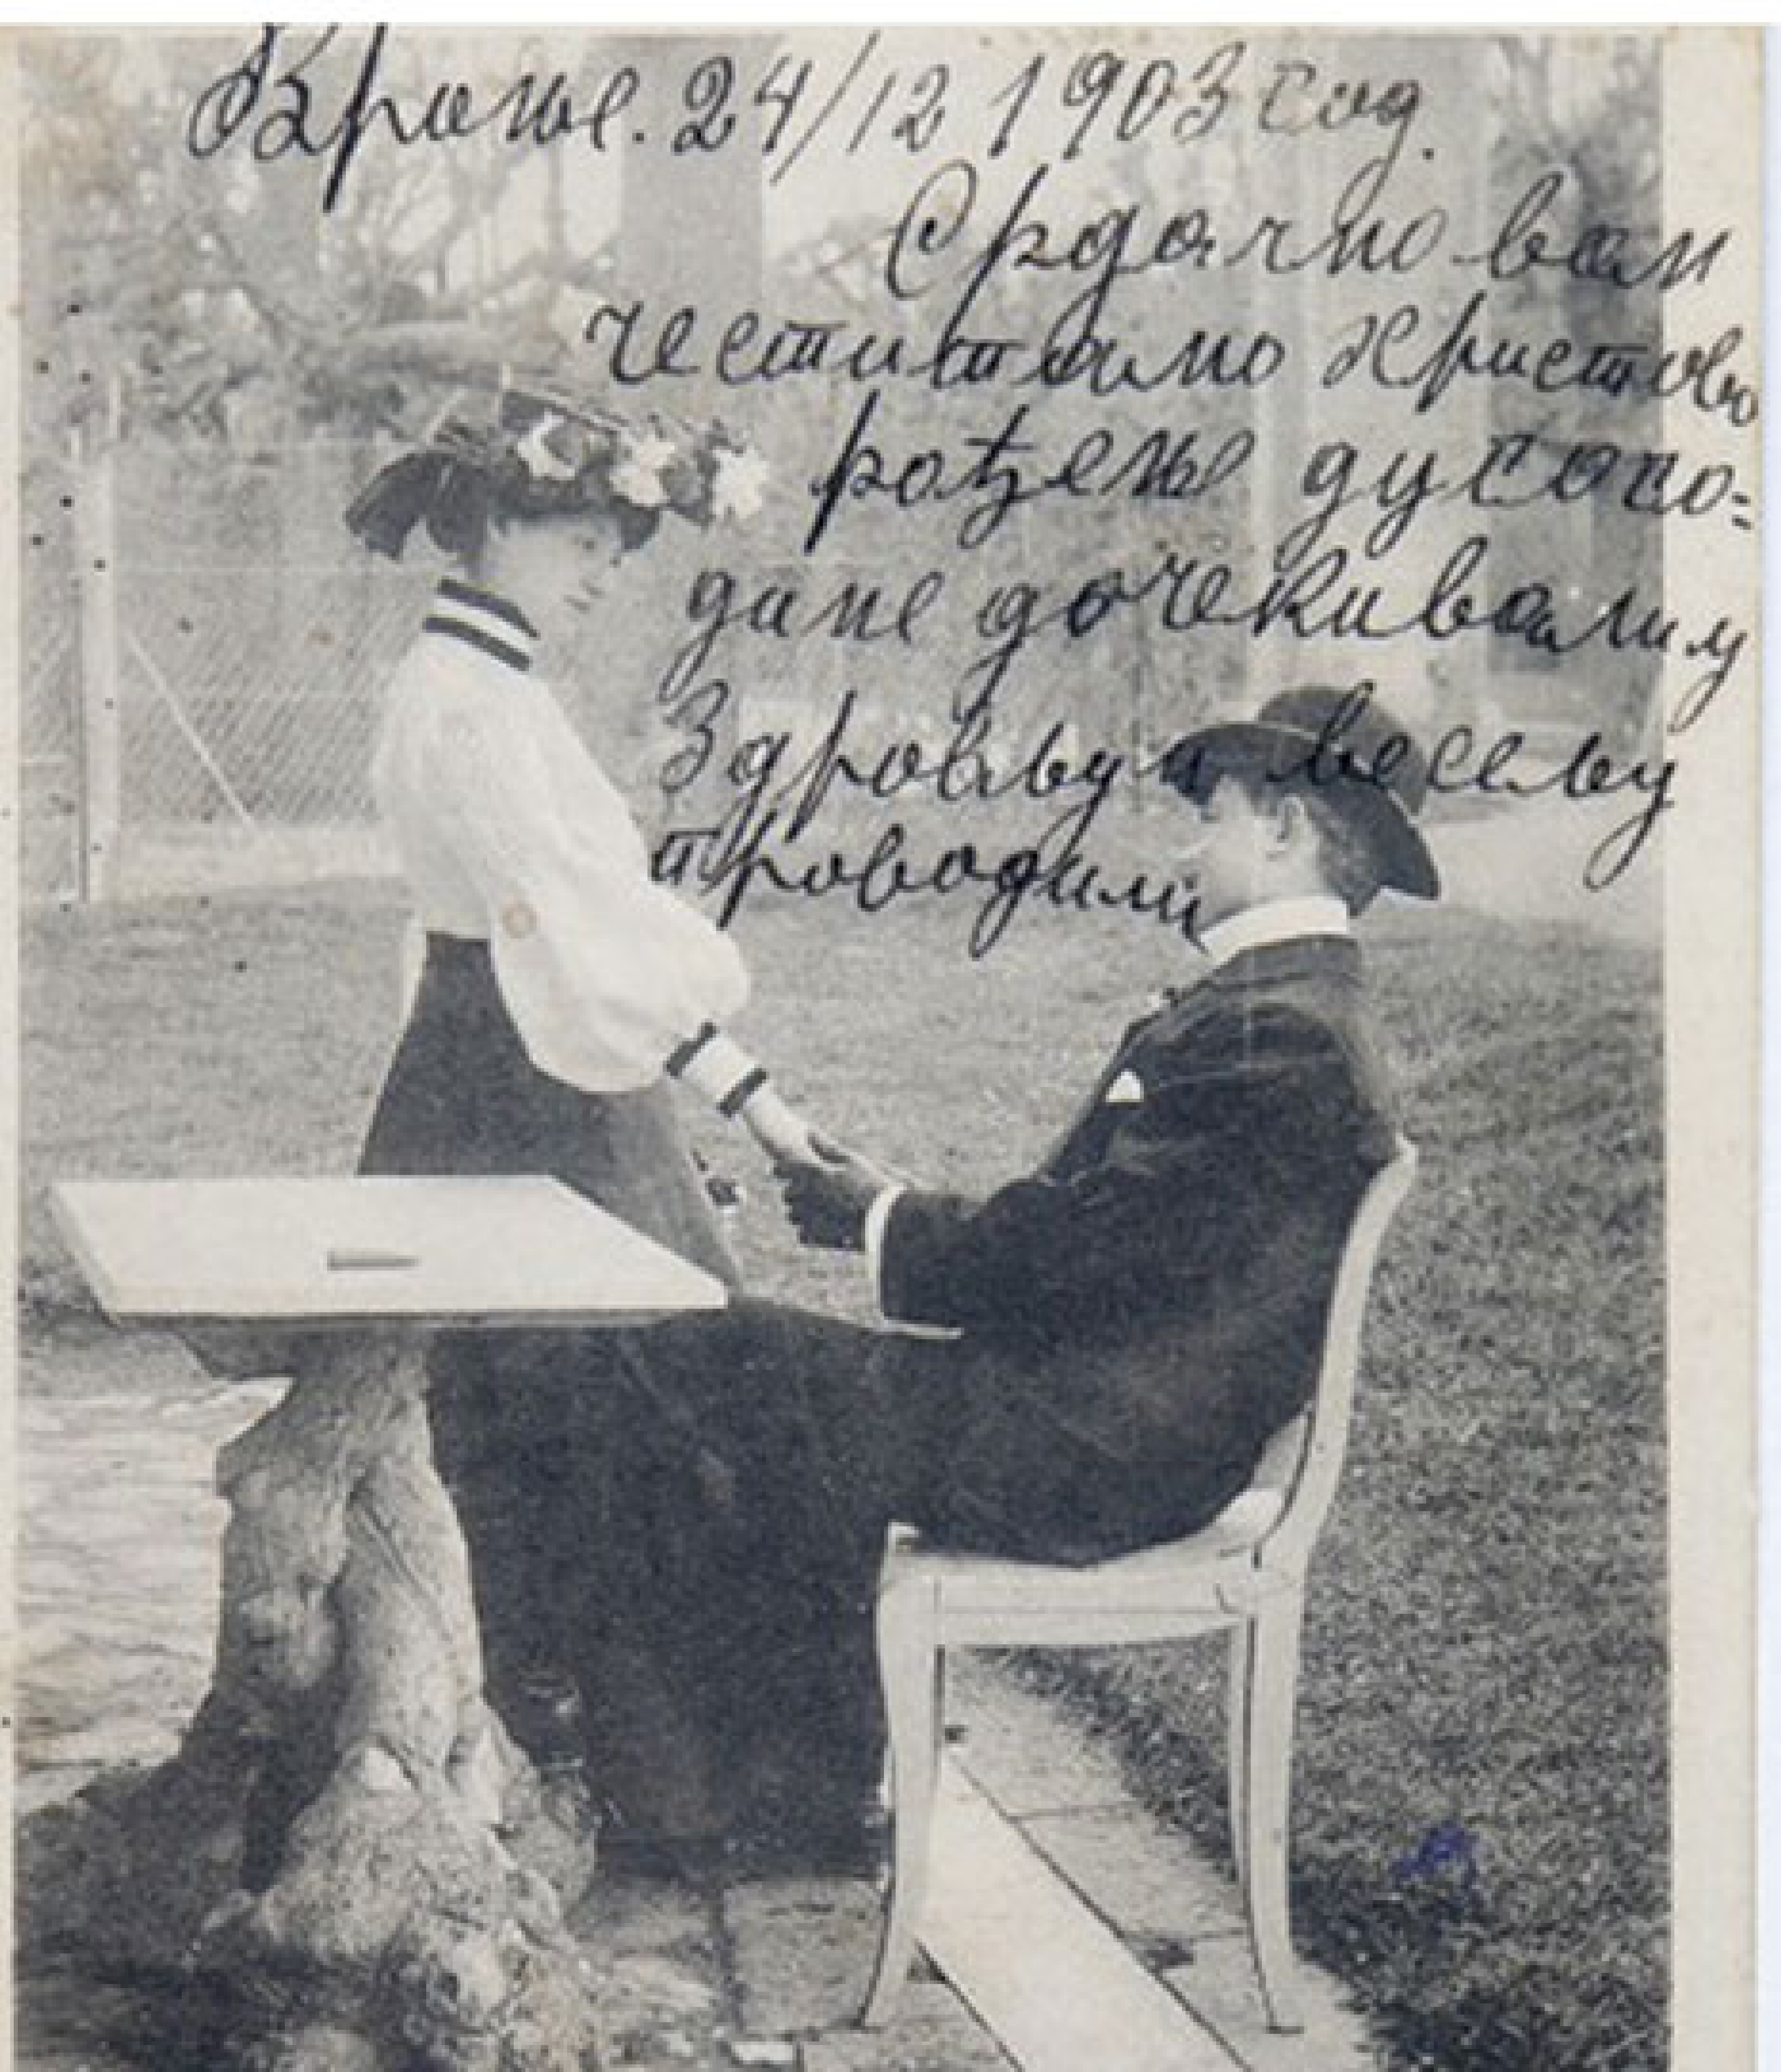 Врање. 24/12 1903 год.
Срдачно вам
честитамо Христово
рођење дугого-
дине дочекивали у
Здрављу и весељу
проводили